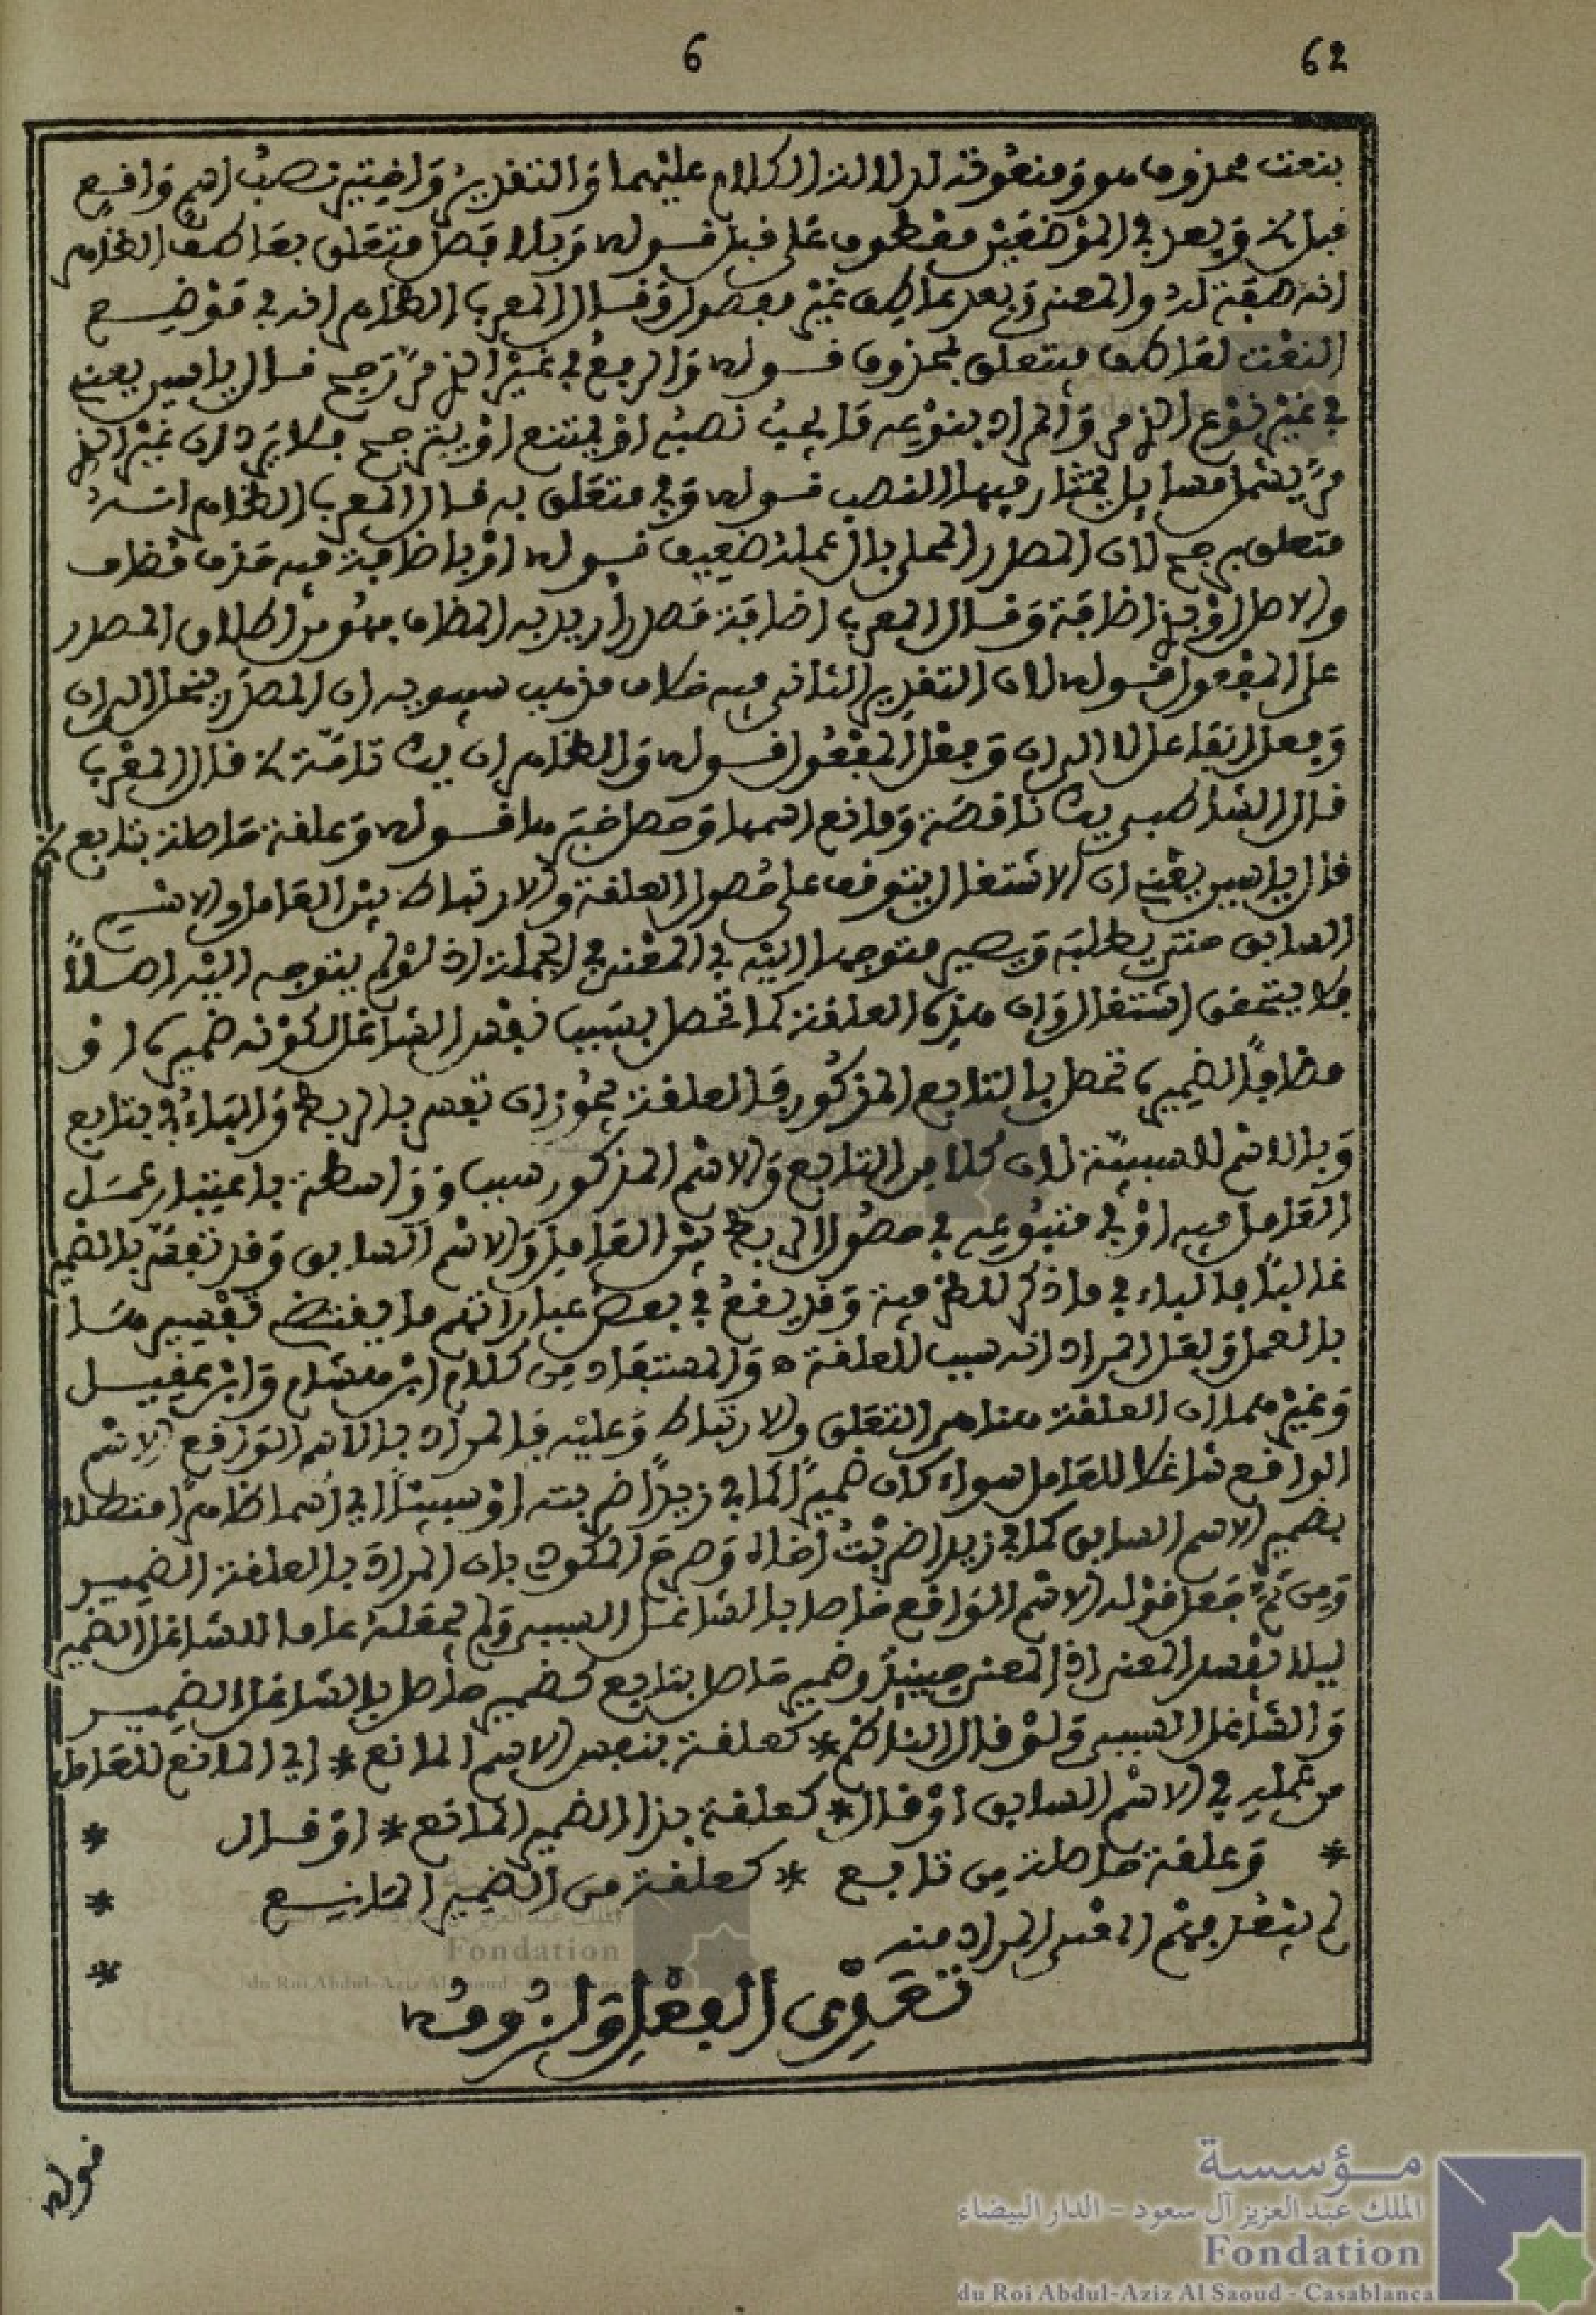 6
62
بنعت محذوف هو ومنعوته لدلالة الكلام عليهما والتقدير واختير نصب اسم واقع
قبل الخ وبعد في الموضعين معطوف على قبل قوله وبلا فصل متعلق بعاطف الظاهر
انه صفة له والمعنى وبعد عاطف غير مفصول وقال المعرب الظاهر انه في موضع
النعت لعاطف متعلق بمحذوف قوله والرفع في غير الذي مر رجح قال ياسين يعني
في غير نوع الذي مر والمراد بنوعه ما يجب نصبه او يمتنع او يترجح فلا يرد ان غير الذي
مر يشمل مسائل يختار فيها النصب قوله وفي متعلق به قال المعرب الظاهر انه
متعلق برجح لان المصدر المحلى بال عمله ضعيف قوله او باضافة فيه حذف مضاف
والاصل او بذي اضافة وقال المعرب اضافة مصدر اريد به المضاف فهو من اطلاق المصدر
على المفعول قوله لان التقدير الثاني فيه خلاف مذهب سيبويه ان المصدر ينحل الى ان
وفعل الفاعل لا الى ان وفعل المفعول قوله والظاهر ان يك تامة الخ قال المعرب
قال الشاطبي يك ناقصة ومانع اسمها وحصل خبرها قوله وعلقة حاصلة بتابع الخ
قال ياسين يعني ان الاشتغال يتوقف على حصول العلقة والارتباط بين العامل والاسم
السابق حتى يطلبه ويصير متوجها اليه في المعنى في الجملة اذ لو لم يتوجه اليه اصلا
فلا يتحقق اشتغال وان هذه العلقة كما تحصل بسبب نفس الشاغل لكونه ضميره او
مضافا لضميره تحصل بالتابع المذكور فالعلقة يجوز ان تفسر بالربط والباء في بتابع
وبالاسم للسببية لان كلا من التابع والاسم المذكور سبب وواسطة باعتبار عمل
العامل فيه او في متبوعه في حصول الربط بين العامل والاسم السابق وقد تفسر بالضمير
غالبا فالباء في ما ذكر للظرفية وقد يقع في بعض عباراتهم ما يقتضي تفسيرها
بالعمل ولعل المراد انه سبب للعلقة ه والمستفاد من كلام ابن هشام وابن عقيل
وغيرهما ان العلقة هنا هي التعلق والارتباط وعليه فالمراد بالاسم الواقع الاسم
الواقع شاغلا للعامل سواء كان ضميرا كما في زيدا ضربته او سببيا اي اسما ظاهرا متصلا
بضمير الاسم السابق كما في زيدا ضربت اخاه وصرح المكودي بان المراد بالعلقة الضمير
ومن ثم جعل قوله الاسم الواقع خاصا بالشاغل السببي ولم يجعله عاما للشاغل الضمير
ليلا يفسد المعنى اذ المعنى حينئذ وضمير حاصل بتابع كضمير حاصل بالشاغل الضمير
والشاغل السببي ولو قال الناظم * كعلقة بنفس الاسم المانع * اي المانع للعامل
من عمله في الاسم السابق او قال * كعلقة بذا الضمير المانع * او قال *
* وعلقة حاصلة من تابع * كعلقة من الضمير المانع *
لم ينغلق فهم المعنى المراد منه *
تعدي الفعل ولزومه
قوله
مؤسسة
الملك عبد العزيز آل سعود - الدار البيضاء
Fondation
du Roi Abdul-Aziz Al Saoud - Casablanca